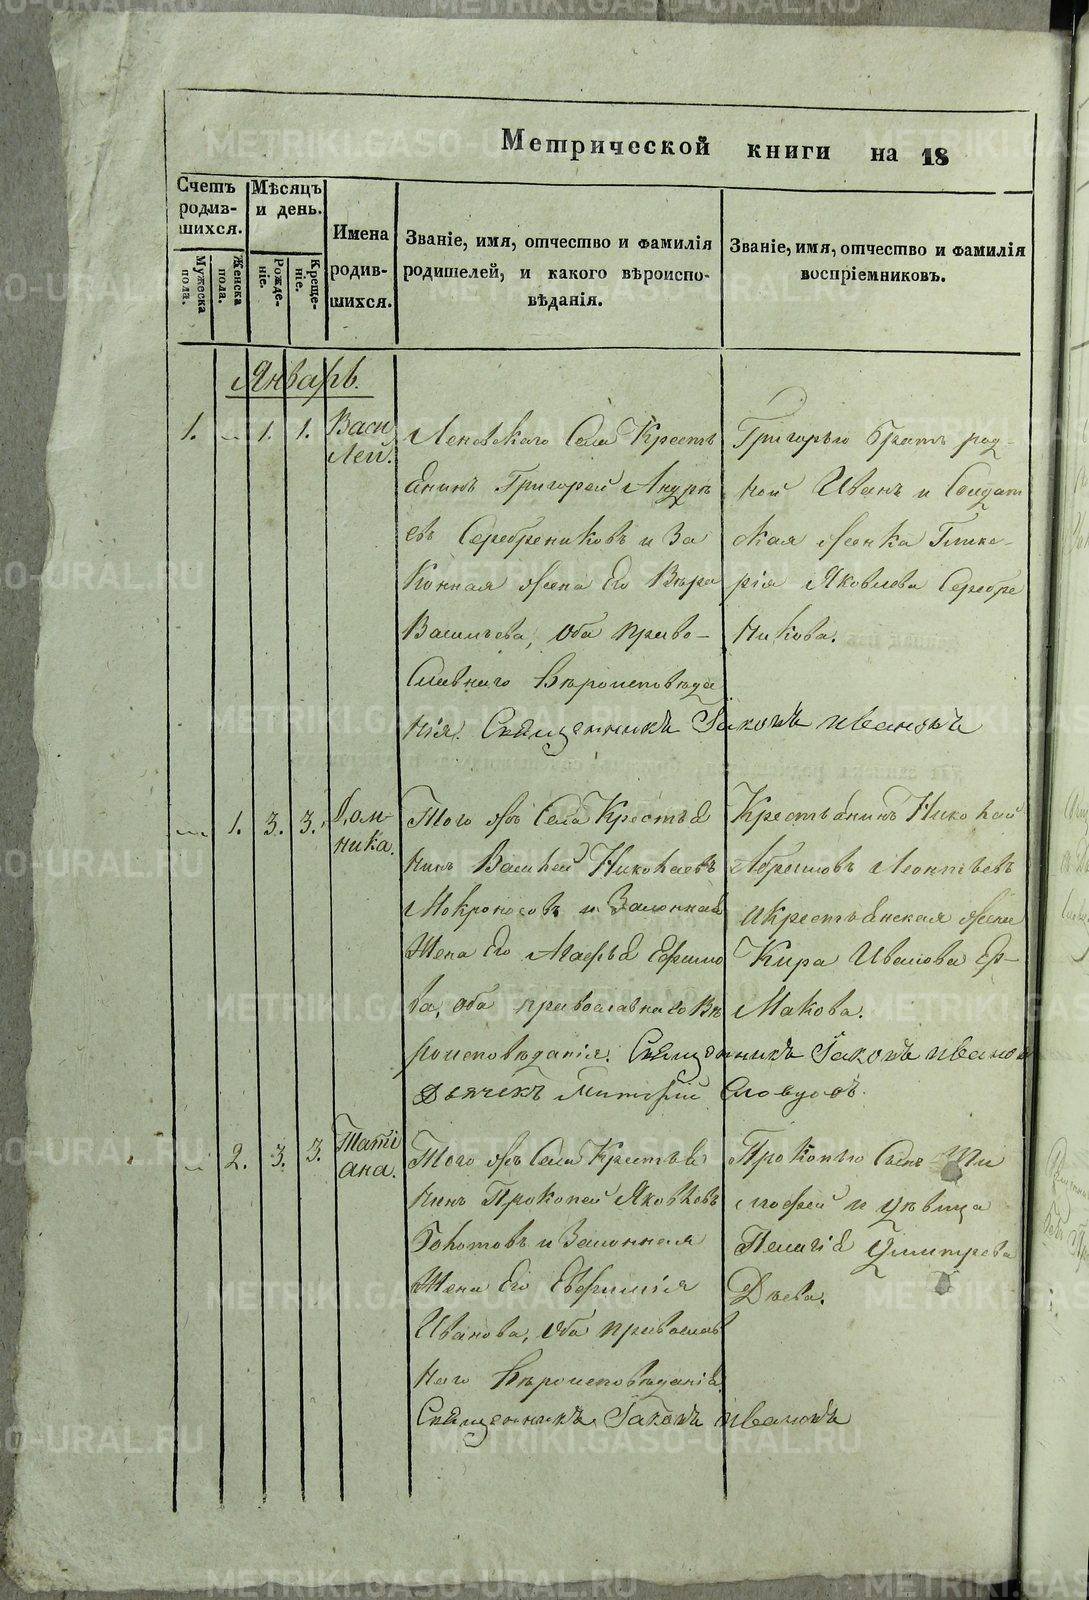 Метрической книги на 18
Счетъ родив-шихся.
Мужеска пола.
Женска пола.
Мѣсяцъ и день.
Рожде-ніе.
Креще-ніе.
Имена родив-шихся.
Званіе, имя, отчество и фамилія
родителей, и какого вѣроиспо-
вѣданія.
Званіе, имя, отчество и фамилія
воспріемниковъ.
Январь.
1. 1. 1.
Васи
лей.
Леневскаго Села Кресть
янинъ Григорей Андрѣ
евъ Серебрениковъ и За
конная жена Его Вѣра
Васильева, оба право-
славнаго вѣроисповѣда
нія. Священникъ Іаковъ Ивановъ
Григорью братъ род-
ной Иванъ и Солдат
ская женка Глике-
рія Яковлева Серебре
никова.
1. 3. 3.
Дом-
ника.
Того жъ Села Крестья
нинъ Василей Николаевъ
Мокроносовъ и Законная
Жена Его Агафья Ефимо
ва, оба православнаго вѣ
роисповѣданія. Священникъ Іаковъ Иванов
Дьячекъ Словцовъ.
Крестьянинъ Николай
Абрамовъ Леонтьевъ
и крестьянская жена
Кира Иванова Ер-
макова.
2. 3. 3.
Таті
ана.
Того жъ Села Крестья
нинъ Прокопей Яковлевъ
и Законная
Жена Его Евфимія
Иванова, оба православ
наго вѣроисповѣданія.
Священникъ Іаковъ Ивановъ
Прокопью Сынъ Ти
мофей и дѣвица
Пелагія Дмитрева
Дѣева.
METRIKI.GASO-URAL.RU